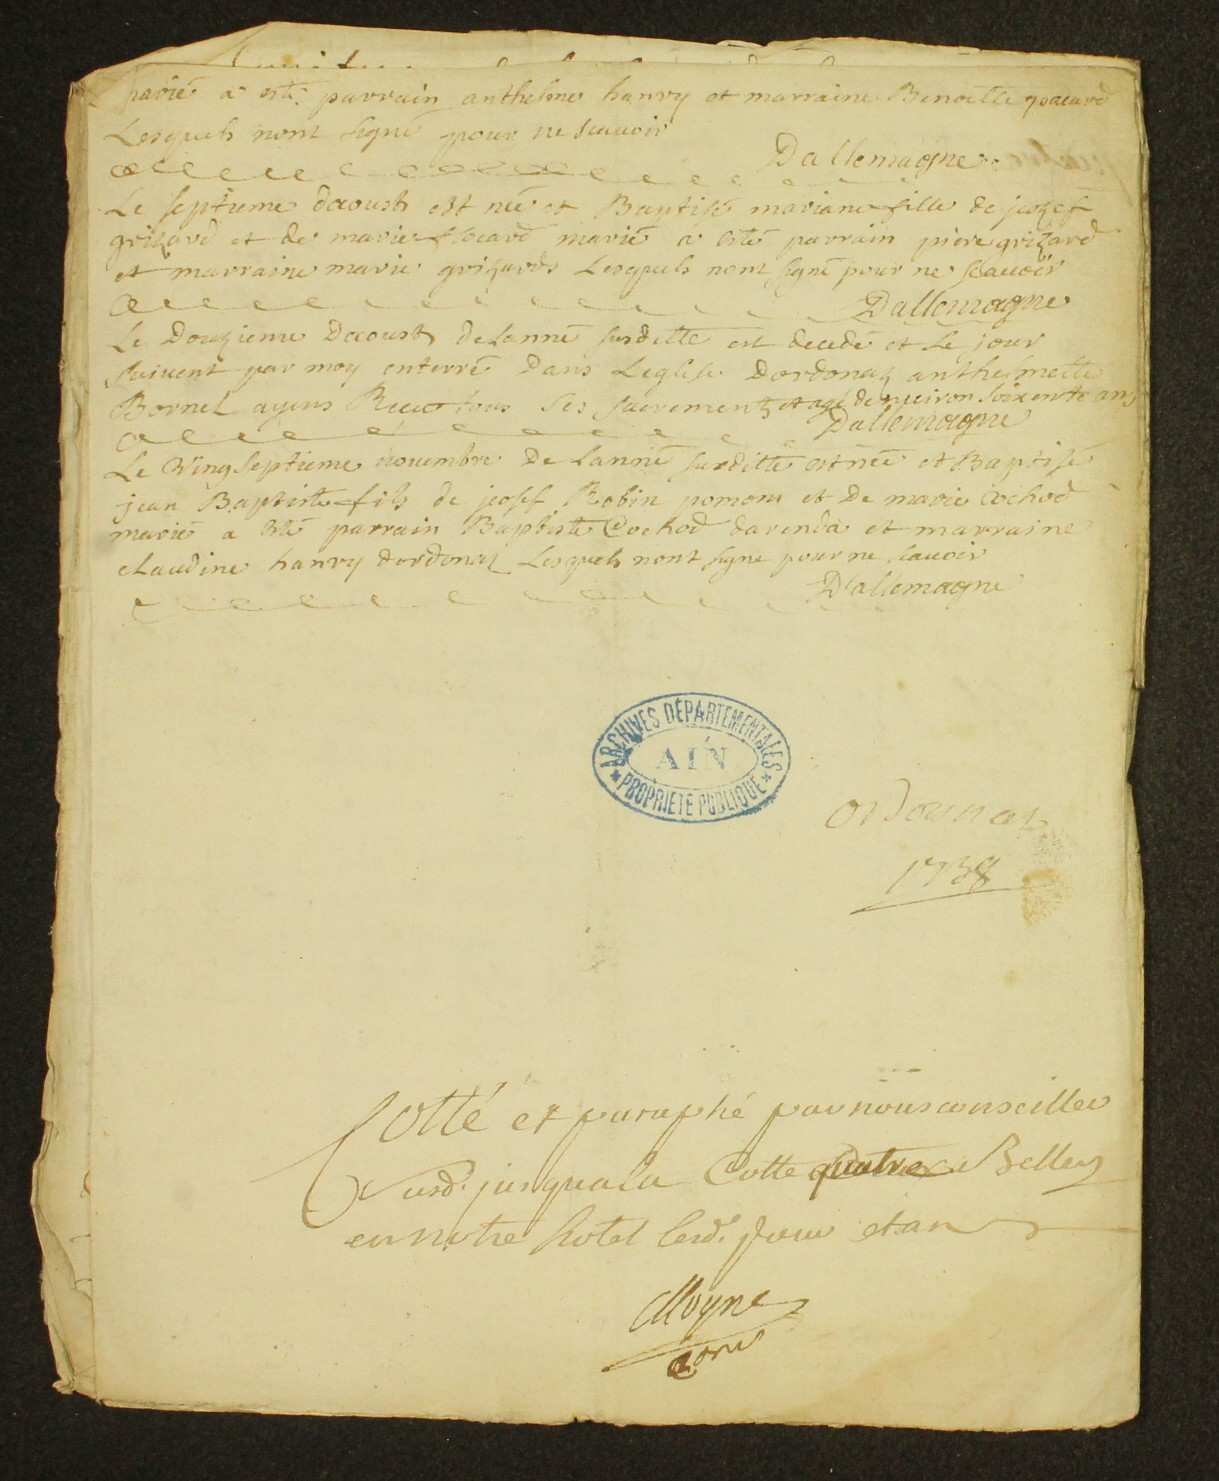 marié a esté parrain anthelme hanry et marraine Benoitte
Lesquels nont signé pour ne scavoir
Dallemagne
Le septieme daoust est née et Baptisé mariane fille de josef
grizard et de marie flocard marié a esté parrain piere grizard
et marraine marie grizard Lesquels nont signé pour ne scavoir
Dallemagne
Le Douzieme Daoust de Lanné susditte est decedé et Le jour
suivent par moy enterré Dans Leglise Dordonaz anthelmette
Bornet ayens Receu tous ses sacrements et agé de nuiron soixente ans
Dallemagne
Le Vingseptieme novembre De Lanné susditte est née et Baptisé
jean Baptiste fils de josef Robin pomom et De marie Cochod
marié a esté parrain Baptiste Cochod darenda et marraine
claudine hanry dordonaz Lesquels nont signe pour ne scavoir
D'allemagne
ARCHIVES DÉPARTEMENTALES
AIN
* PROPRIÉTÉ PUBLIQUE *
ordonnaz
1738
Cotté et paraphé par nous conseiller
susd. jusqua la Cotte quatre a Belley
en notre hotel lesd. jour et an